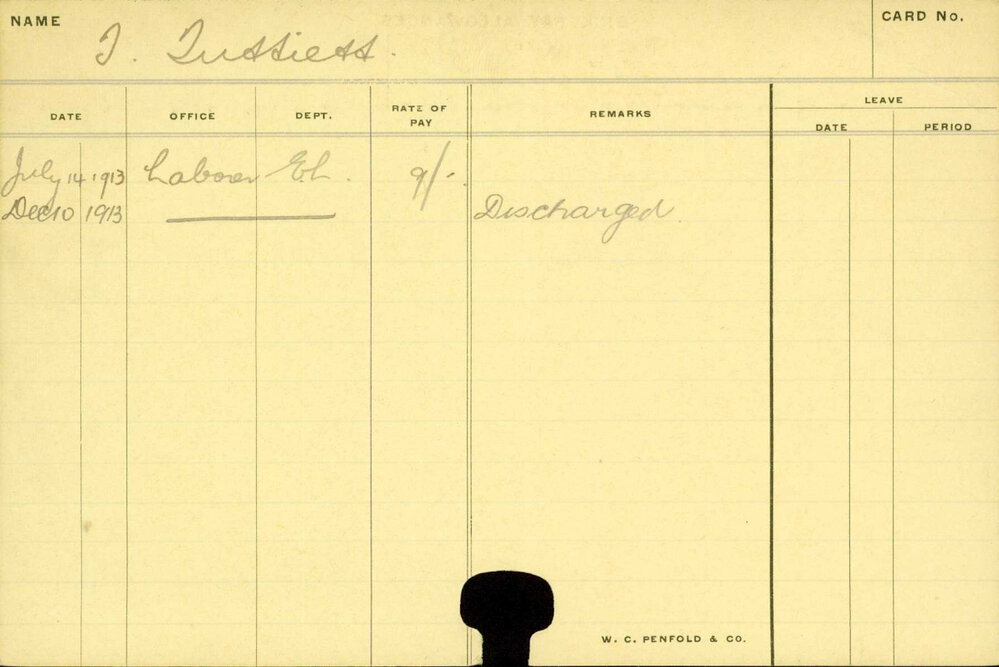 NAME
CARD No.
T. Tussiett.
DATE OFFICE DEPT. RATE OF PAY REMARKS LEAVE
DATE PERIOD
July 14 1913 Laborer E.L. 9/-.
Dec 10 1913 Discharged.
W. C. PENFOLD & CO.